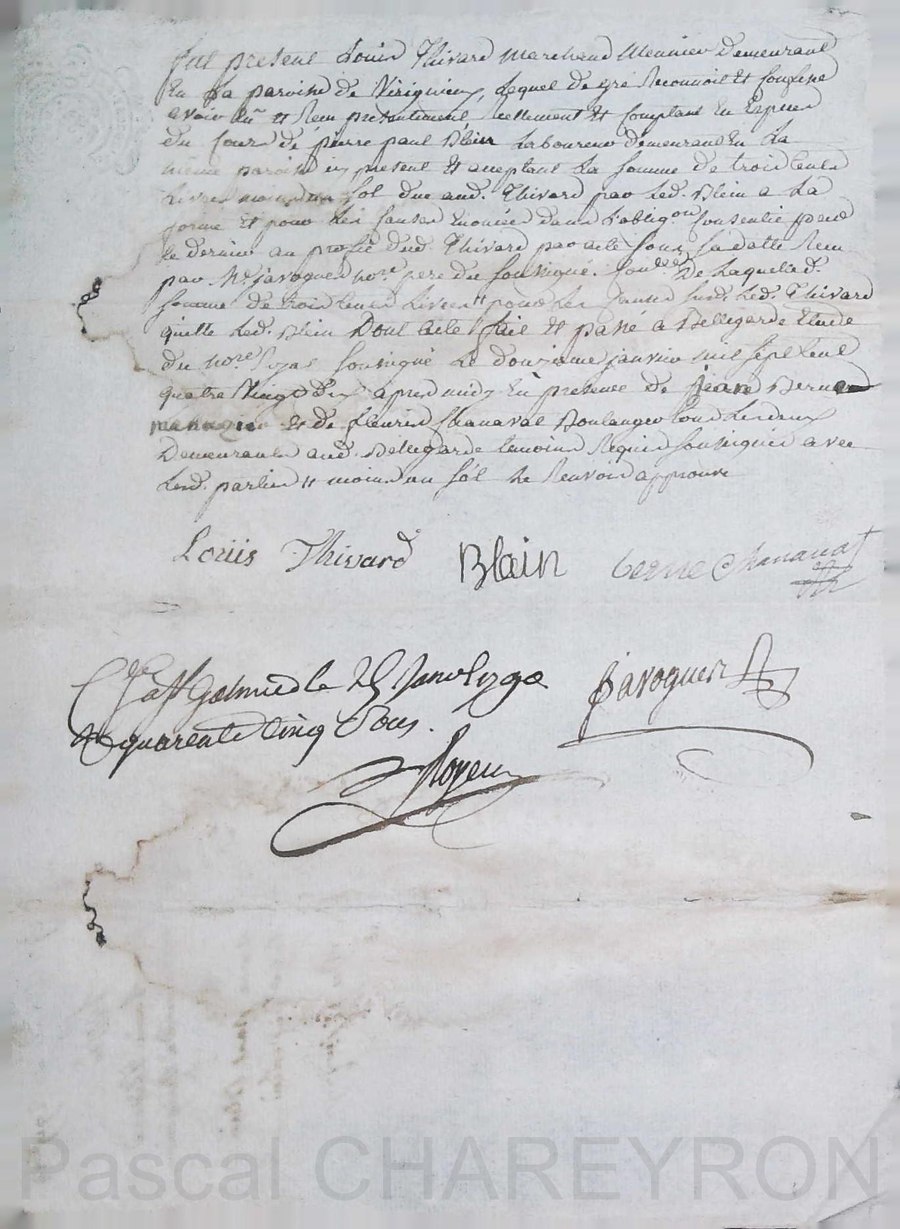 fut present Louis Thivard Marchand Meunier demeurant
En La paroisse de Virignieu, Lequel de gré Reconnoit et Confesse
avoir Eu et Reçu présentement Reellement et Comptant En Espèces
du Cours de pierre paul Blein Laboureur demeurant En La
même paroisse ici present et acceptant La Somme de trois Cents
Livres moins un Sol due aud. Thivard par Led. Blein a La
forme et pour Les Causes Enoncées dans L'oblig.on Consentie par
Ce dernier au profit dud. Thivard par acte Sous Sa datte Reçu
par M.e javogues no.re pere du Soussigné. De Laquelle d.
Somme de trois Cents Livres pour Les Causes Led. Thivard
quitte Led. Blein Dont Acte fait et passé a Bellegarde Etude
du no.re Royal Soussigné Le douzieme janvier mil Sept Cent
quatre Vingt dix apres midy En presence de jean Berne
et de fleuris Chanavat Boulanger tous Les deux
Demeurants aud. Bellegarde temoins Requis Soussignés avec
Lesd. parties et moins un Sol Le Renvoi approuvé
Louis Thivard Blain berne Chanavat
C.lé a St Galmier le 25 Janv. 1790 javogues
R quarente Cinq Sous.
Royer
Pascal CHAREYRON